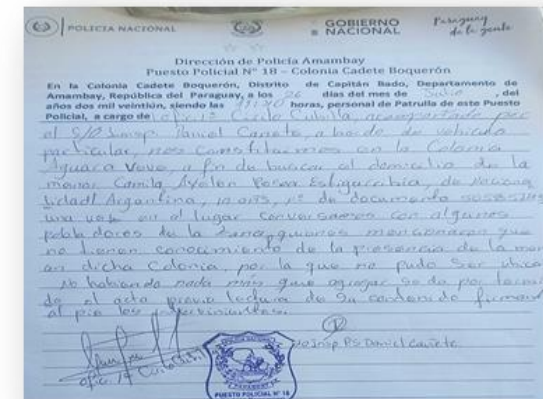 POLICIA NACIONAL
GOBIERNO NACIONAL
Paraguay de la gente
Dirección de Policía Amambay
Puesto Policial N° 18 – Colonia Cadete Boquerón
En la Colonia Cadete Boquerón, Distrito de Capitán Bado, Departamento de
Amambay, República del Paraguay, a los 26 días del mes de Julio, del
años dos mil veintiún, siendo las horas, personal de Patrulla de este Puesto
Policial, a cargo de Cirilo Cubilla, acompañado por
el S/O Insp. Daniel Canete, a bordo de vehiculo
particular, nos constituimos en la Colonia
Aguara Veve, a fin de buscar el domicilio de la
menor Camila Ayelen, de naciona
lidad Argentina, 10 años, N° de documento
una vez en el lugar conversamos con algunos
pobladores de la zona, quienes mencionaron que
no tienen conocimiento de la presencia de la men
en dicha Colonia, por la que no pudo ser ubica
No habiendo nada más que agregar se da por termi
do el acto previo lectura de su contenido firmand
al pie los intervinientes.
Insp. PS Daniel Cañete
POLICIA NACIONAL
PUESTO POLICIAL N° 18